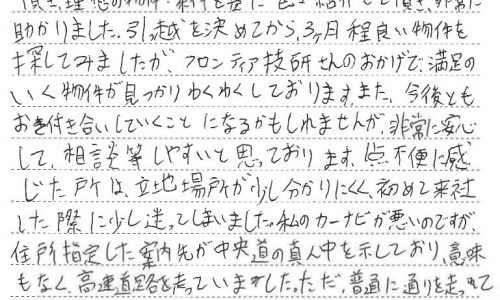 頂き、理想の物件、条件を基に色々紹介して頂き、非常に
助かりました。引っ越を決めてから、3ヶ月程良い物件を
探してみましたが フロンティア技研さんのおかげで、満足の
いく物件が見つかりわくわくしております。また、今後とも
お付き合いしていくこと になるかもしれませんが、非常に安心
して、相談等しやすいと思っております。点不便に感
じた所は、立地場所が少し分かりにくく、初めて来社
した際に少し迷ってしまいました。私のカーナビが悪いのですが、
住所指定した案内先が中央道の真ん中を示しており、意味
もなく、高速道路を走っていました。ただ、普通に通りを走って